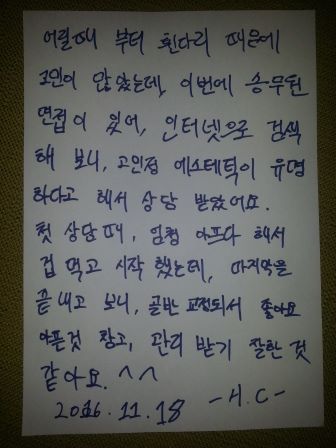 어릴때 부터 휜다리 때문에
고민이 많았는데, 이번에 승무원
면접이 있어, 인터넷으로 검색
해 보니, 고인점 에스테틱이 유명
하다고 해서 상담 받았어요.
첫 상담때, 엄청 아프다 해서
겁 먹고 시작 했는데, 마지막을
끝내고 보니, 골반 교정되서 좋아요
아픈것 참고, 관리 받기 잘한 것
같아요. ^^
2016.11.18 -H.C-